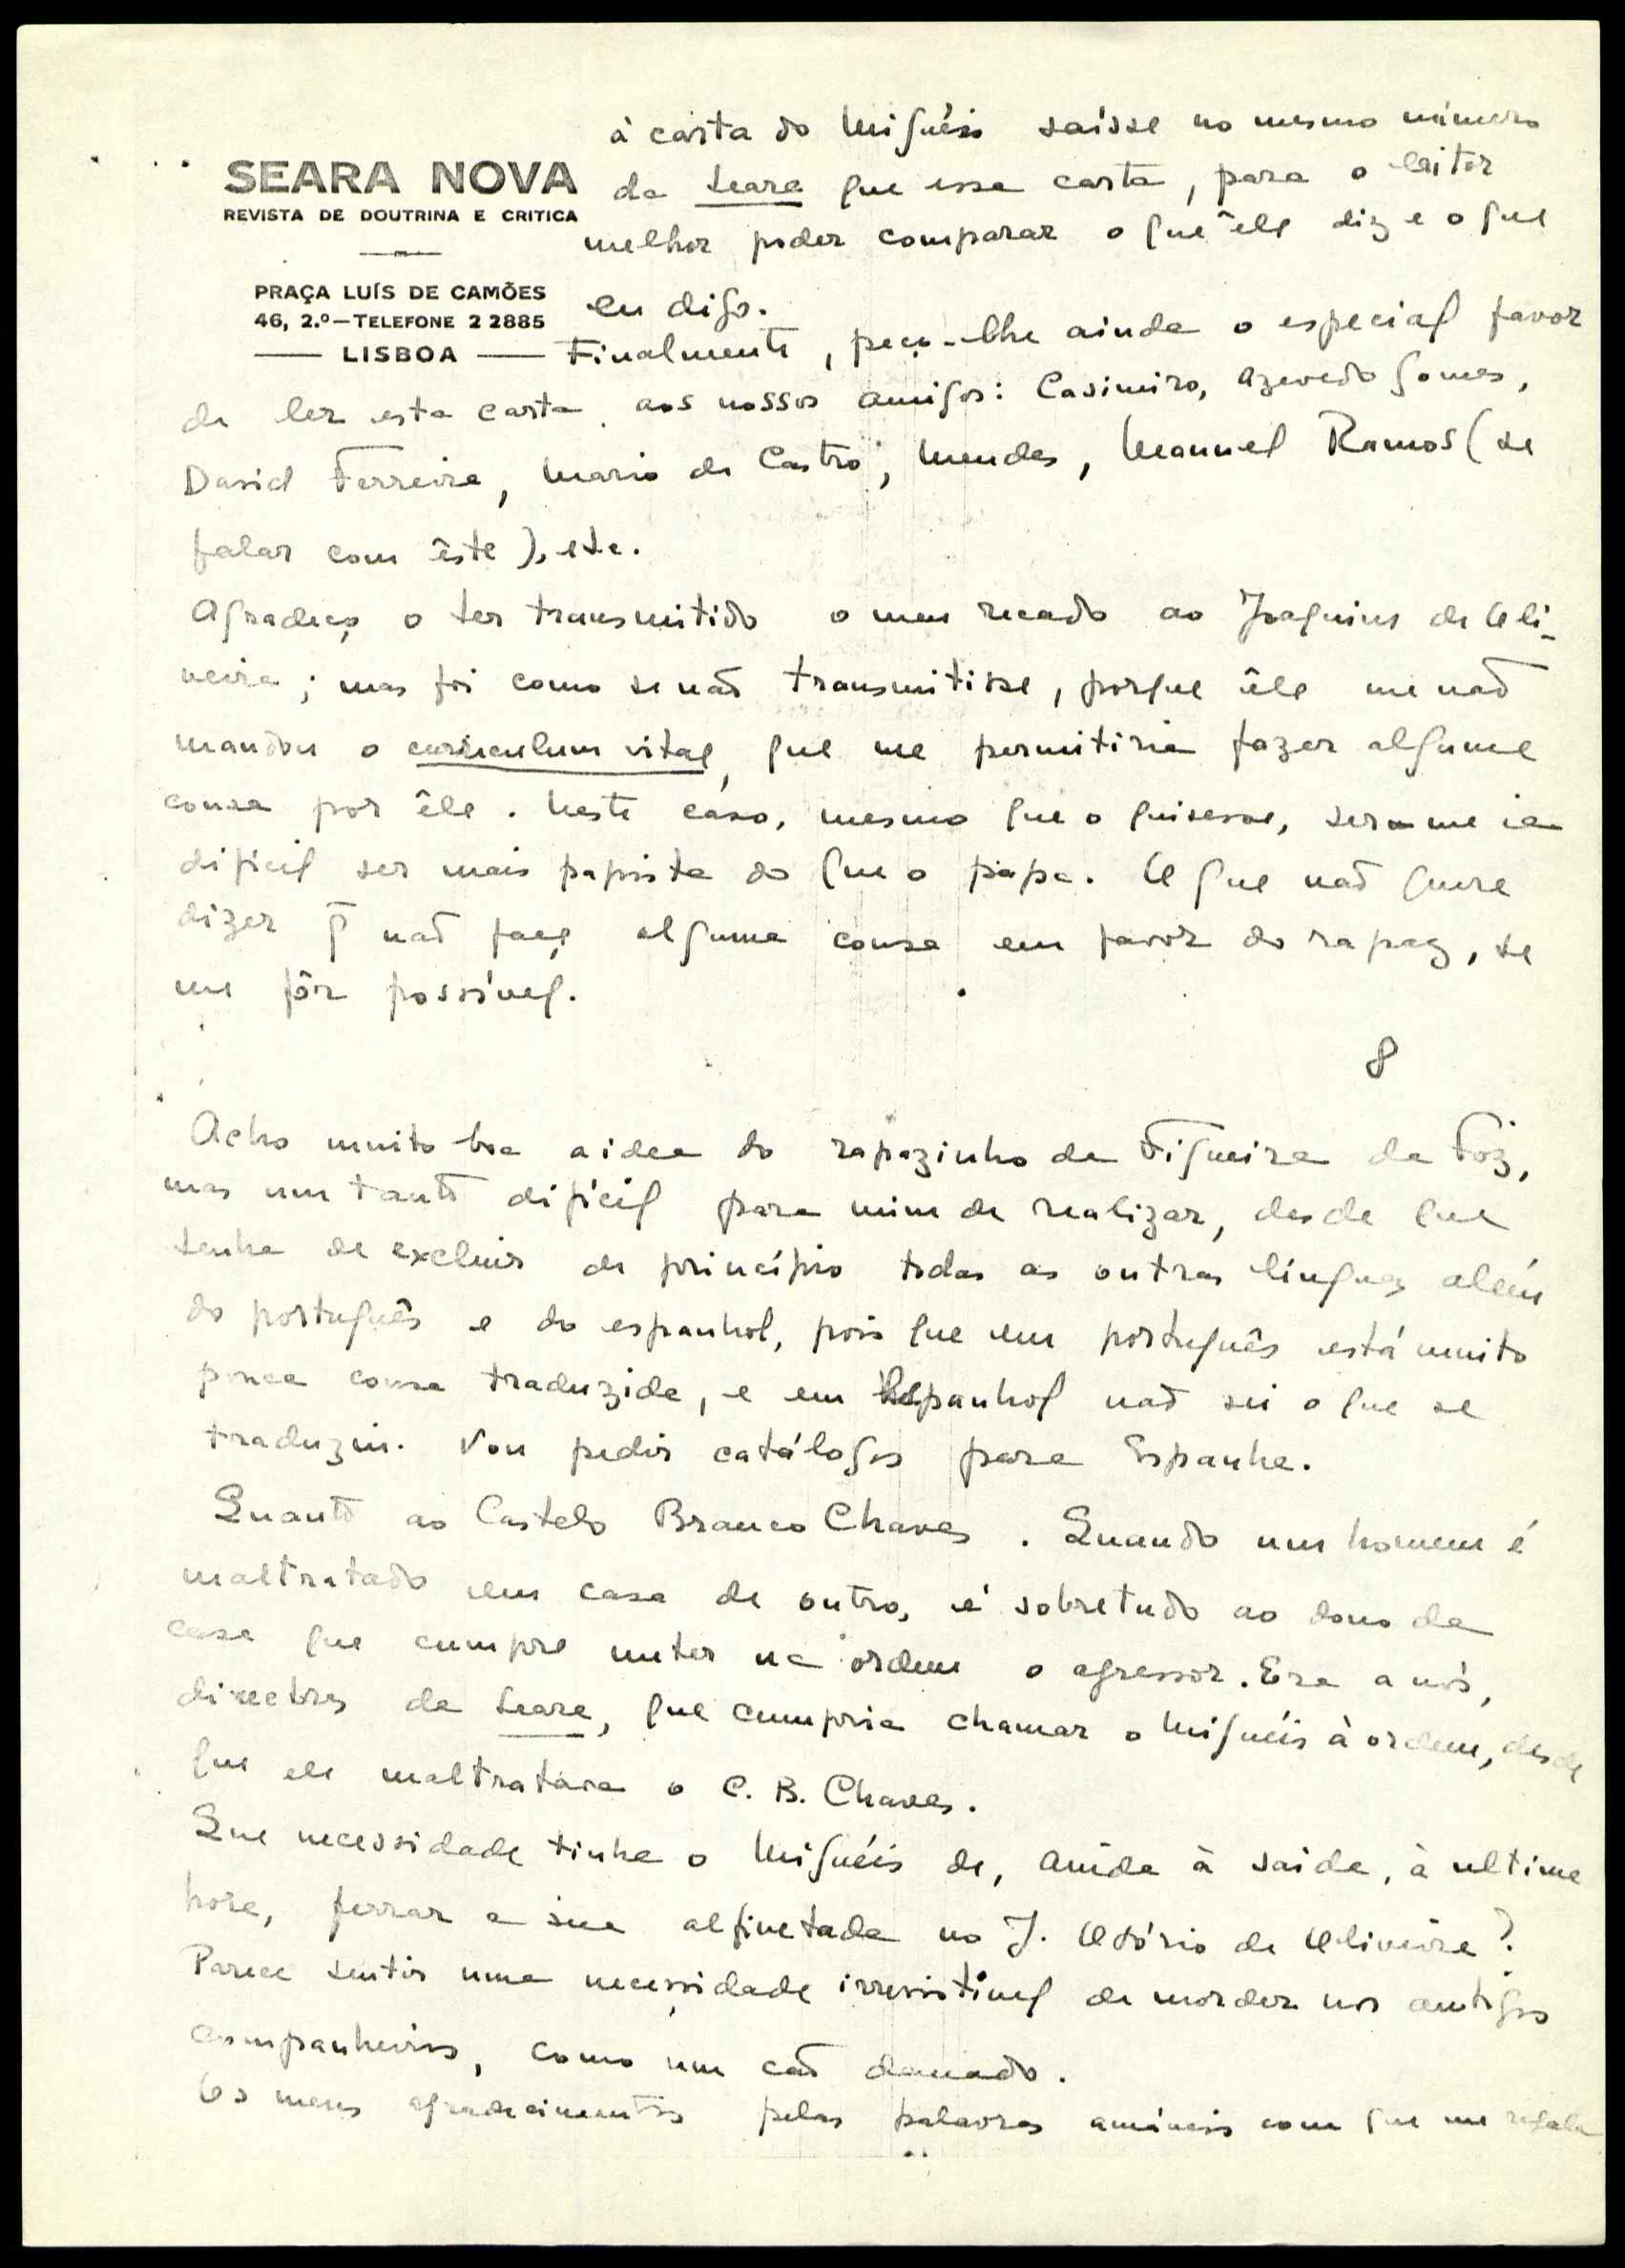 SEARA NOVA
REVISTA DE DOUTRINA E CRITICA
PRAÇA LUÍS DE CAMÕES
46, 2.º—TELEFONE 2 2885
LISBOA
à carta do Miguéis saísse no mesmo número
da Seara que essa carta, para o leitor
melhor poder comparar o que êle diz e o que
eu digo.
Finalmente, peço-lhe ainda o especial favor
de ler esta carta aos nossos amigos: Casimiro, Azevedo Gomes,
David Ferreira, Mario de Castro, Mendes, Manuel Ramos (se
falar com êste), etc.
Agradeço o ter transmitido o meu recado ao Joaquim de Oli-
veira; mas foi como se não transmitisse, porque êle me não
mandou o curriculum vitae, que me permitiria fazer alguma
cousa por êle. Neste caso, mesmo que o quisesse, ser-me-ia
dificil ser mais papista do que o papa. O que não quere
dizer q̃ não faça alguma cousa em favor do rapaz, se
me fôr possível.
8
Acho muito boa a idea do rapazinho da Figueira da Foz,
mas um tanto difícil para mim de realizar, desde que
tenha de excluir de princípio todas as outras línguas além
do português e do espanhol, pois que em português está muito
pouca cousa traduzida, e em espanhol não sei o que se
traduziu. Vou pedir catálogos para Espanha.
Quanto ao Castelo Branco Chaves. Quando um homem é
maltratado em casa de outro, é sobretudo ao dono da
casa que cumpre meter na ordem o agressor. Era a nós,
directores da Seara, que cumpria chamar o Miguéis à ordem, desde
que ele maltratára o C. B. Chaves.
Que necessidade tinha o Miguéis de, ainda à saida, à ultima
hora, ferrar a sua alfinetada no J. Osório de Oliveira?
Parece sentir uma necessidade irresistivel de morder nos antigos
companheiros, como um cão danado.
Os meus agradecimentos pelas palavras amáveis com que me regala